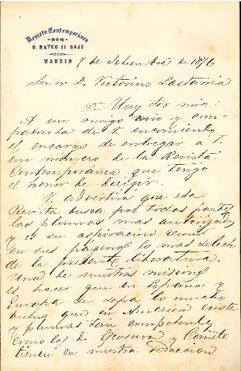 Revista Contemporánea
S. MATEO. 11 BAJO
MADRID
9 de Setiembre de 1876
Señor D. Victorino Lastarria
Muy Sor mio:
A un amigo mio y compatriota
de V. encomiendo
el encargo de entregar a V.
un número de la Revista
Contemporánea que tengo
el honor de dirigir.
V. advertirá que esta
Revista busca por todas partes
las plumas mas
y es su aspiracion
en sus paginas lo mas selecto
de la presente literatura.
Una de nuestras misiones
es hacer que en España y
Europa se sepa lo mucho
bueno que en America existe
y plumas tan competentes
como las de
tienen en nuestra redaccion